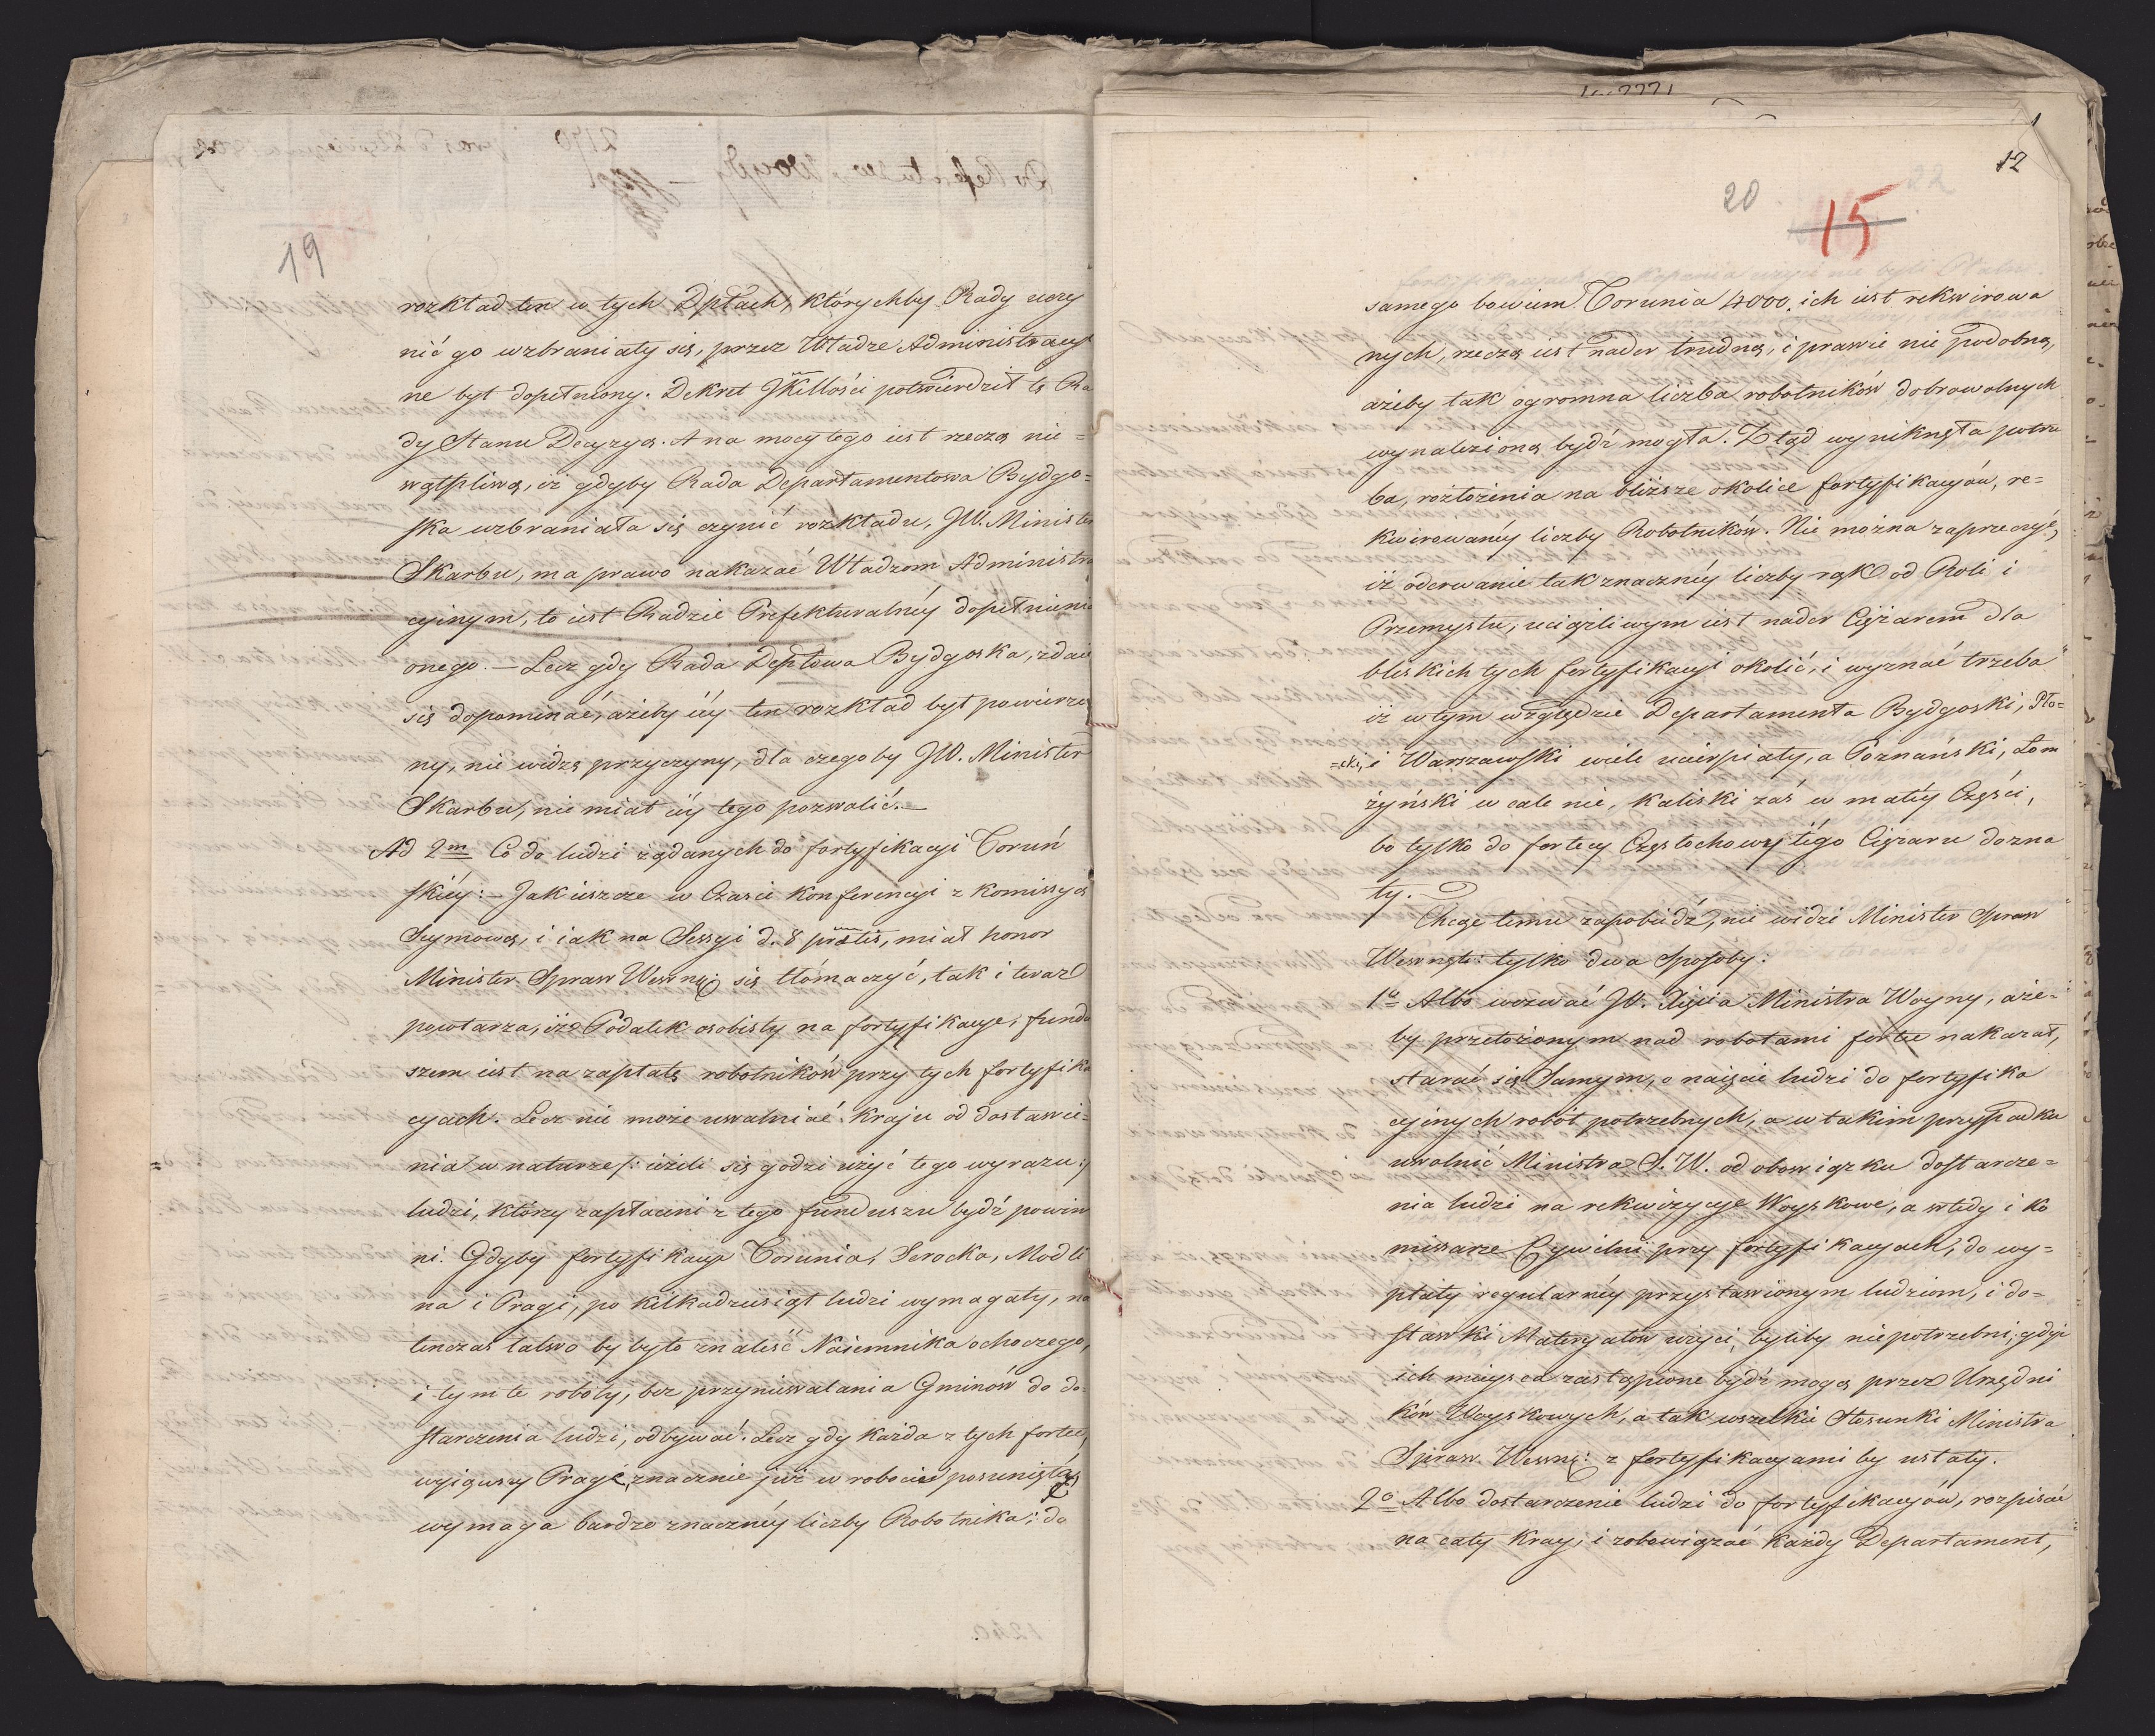 19
rozkład ten w tych Dptach, którychby Rady uczy
nić go wzbraniały się, przez Władze Administracyi
ne był dopełniony. Dekret JKMłości potwierdził tę Ra
dy Stanu Decyzyą. A na mocy tego iest rzeczą nie=
wątpliwą, iż gdyby Rada Departamentowa Bydgo=
ska wzbraniała się czynić rozkładu, JW. Minister
Skarbu, ma prawo nakazać Władzom Administra
cyinym, to iest Radzie Prefekturalnéy dopełnieni
onego. — Lecz gdy Rada Deptowa Bydgoska, zdaie
się dopominać, ażeby iéy ten rozkład był powierzo
ny, nie widzę przyczyny, dla czegoby JW. Minister
Skarbu, nie miał iéy tego pozwolić. —
Ad 2m Co do ludzi żądanych do fortyfikacyi Toruń
skiéy: — Jak ieszcze w Czasie konferencyi z komissyą
Seymową, i iak na Sessyi d. 8 praetis, miał honor
Minister Spraw Wewnę: się tłómaczyć, tak i teraz
powtarza, iż Podatek osobisty na fortyfikacye, fundu
szem iest na zapłatę robotników przy tych fortyfika
cyach. Lecz nie może uwalniać kraju od dostawie=
nia w naturze /: ieżeli się godzi użyć tego wyrazu :/
ludzi, którzy zapłaceni z tego funduszu bydź powin
ni. Gdyby fortyfikacye Torunia, Serocka, Modli
na i Pragi, po kilkadziesiąt ludzi wymagały, na
tenczas łatwo by było znaleść Naiemnika ochoczego,
i tym te roboty, bez przyniewalania Gminów do do=
starczenia ludzi, odbywać. Lecz gdy każda z tych fortec,
wyiąwszy Pragę, znacznie już w robocie posuniętą,
wymaga bardzo znacznéy liczby Robotnika; do
12
20
22
15
samego bowiem Torunia 4000. ich iest rekwirowa
nych, rzeczą iest nader trudną, i prawie nie podobną,
ażeby tak ogromna liczba robotników dobrowolnych
wynalezioną bydź mogła. Ztąd wyniknęła potrze
ba, rozłożenia na bliższe okolice fortyfikacyów, re=
kwirowanéy liczby Robotników. Nie można zaprzeczyć,
iż oderwanie tak znacznéy liczby rąk od Roli i
Przemysłu, uciążliwym iest nader Ciężarem dla
bliskich tych fortyfikacyi okolic, i wyznać trzeba
iż w tym względzie Departamenta Bydgoski, Pło=
=cki, i Warszawski wiele ucierpiały, a Poznański, Łom
żyński w cale nie, Kaliski zaś w małéy Części,
bo tylko do fortecy Częstochowy tégo Ciężaru dozna
ły. —
Chcąc temu zapobiedź, nie widzi Minister Spraw
Wewnętr: tylko dwa Sposoby:
1o Albo wezwać JO. Xięcia Ministra Woyny, aże=
by przełożonym nad robotami fortec nakazał,
starać się Samym, o naięcie ludzi do fortyfika
cyinych robót potrzebnych, a w takim przypadku
uwolnić Ministra S. W. od obowiązku dostarcze=
nia ludzi na rekwizycye Woyskowe, a wtedy i Ko
missarze Cywilni przy fortyfikacyach, do wy=
płaty regularnéy przystawionym ludziom, i do=
stawki Materyałów użyci, byliby niepotrzebni; gdyż
ich mieysca zastąpione bydź mogą przez Urzędni
ków Woyskowych, a tak wszelkie Stosunki Ministra
Spraw Wewnę: z fortyfikacyami by ustały.
2o Albo dostarczenie ludzi do fortyfikacyów, rozpisać
na cały Kray, i zobowiązać każdy Departament,